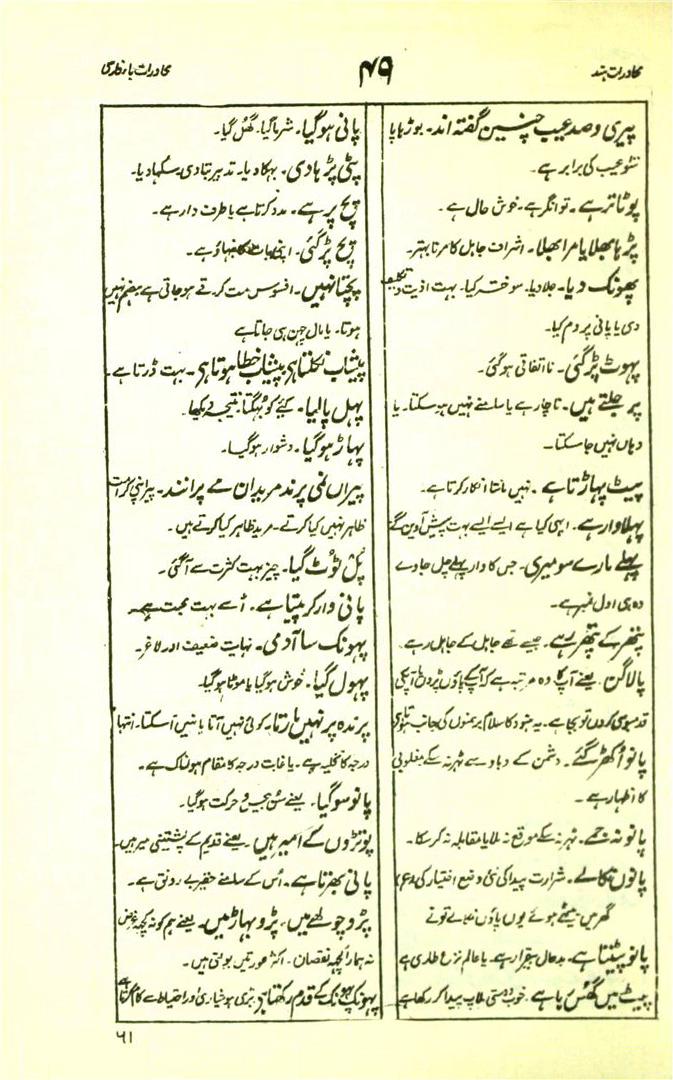 محاورات ہند
۴۹
محاورات باء فارسی
پیری و صد عیب چنیں گفتہ اند۔ بوڑہاپا
سَو عیب کی برابر ہے۔
پوٹا تر ہے۔ توانگر ہے۔ خوش حال ہے۔
پڑہا بھلا یا مرا بھلا۔ اشراف جاہل کا مرنا بہتر۔
پھونک دیا۔ جلا دیا۔ سوختہ کیا۔ بہت اذیت و تکلیف
دی یا پانی پر دم کیا۔
پہوٹ پڑگئی۔ نااتفاقی ہوگئی۔
پر جلتے ہیں۔ ناچار ہے یا سامنے نہیں ہوسکتا۔ یا
وہاں نہیں جا سکتا۔
پیٹ پہاڑتا ہے۔ نہیں مانتا انکار کرتا ہے۔
پہلا وار ہے۔ ابہی کیا ہے ایسے ایسے بہت پیش آوینگے
پہلے مارے سو میری۔ جس کا وار پہلے چل جاوے
وہ ہی اول نمبر ہے۔
پتھر کے پتھر رہے۔ جیسے تھے جاہل کے جاہل رہے۔
پالاگن۔ یعنے آپ کا وہ مرتبہ ہے کہ آپکے پاؤں پڑوں یا آپکی
قدمبوسی کروں تو بجا ہے۔ یہ ہنود کا سلام برہمنوں کی جانب ہوتا ہے
پانو اُکھڑ گئے۔ دشمن کے دباو سے ٹہرنہ سکے مغلوبی
کا اظہار ہے۔
پانو نہ جمے۔ ٹہرنہ سکے موقع نہ ملا یا مقابلہ نہ کر سکا۔
پانوں نکالے۔ شرارت پیدا کی نئی وضع اختیار کی (ع)
گھر میں بیٹھے ہوئے یوں پاؤں نکالے تونے
پانو پیٹتا ہے۔ بدحال بیقرار ہے۔ یا عالم نزع طاری ہے
پیٹ میں گھُس رہا ہے۔ خوب دوستی ملاپ پیدا کر رکھا ہے
پانی ہوگیا۔ شرما گیا۔ گھُل گیا۔
پٹی پڑہادی۔ بہکا دیا۔ تدبیر بتا دی۔ سکہا دیا۔
پچ پر ہے۔ مدد کرتا ہے یا طرف دار ہے۔
پچ پڑگئی۔ اپنی بات کا نباہو ہے۔
پچتا نہیں۔ افسوس مت کر قے ہو جاتی ہے ہضم نہیں
ہوتا۔ یا مال چہن ہی جاتا ہے
پیشاب نکلتا ہی پیشاب خطا ہوتا ہی۔ بہت ڈرتا ہے۔
پہل پالیا۔ کئے کو بُہگتا نتیجہ دیکھا۔
پہاڑ ہوگیا۔ دشوار ہوگیا۔
پیراں نمی پرند مریدان مے پرانند۔ پیر اپنی کرامت
ظاہر نہیں کیا کرتے۔ مرید ظاہر کیا کرتے ہیں۔
پُل ٹوٹ گیا۔ چیز بہت کثرت سے آگئی۔
پانی وار کر پیتا ہے۔ اُسے بہت محبت ہے۔
پہونک سا آدمی۔ نہایت ضعیف اور لاغر۔
پہول گیا۔ خوش ہوگیا یا موٹا ہوگیا۔
پرندہ پر نہیں مارتا۔ کوئی نہیں آتا یا نہیں آسکتا۔ انتہا
درجہ کا تخلیہ ہے۔ یا غایت درجہ کا مقام ہولناک ہے۔
پانو سوگیا۔ یعنے سُن بے حس و حرکت ہوگیا۔
پوتڑوں کے امیر ہیں۔ یعنے قدیم کے پشتینی میر ہیں۔
پانی بھرتا ہے۔ اُس کے سامنے حقیر بے رونق ہے۔
پڑو چولھے میں۔ پڑو بہاڑ میں۔ یعنے ہم کو نہ کچہہ غرض
نہ ہمارا کچہہ نقصان۔ اکثر عورتیں بولتی ہیں۔
پہونک پہونک کے قدم رکھتا ہے۔ بڑی ہوشیاری اور احتیاط سے کام کرتا ہے
۶۱